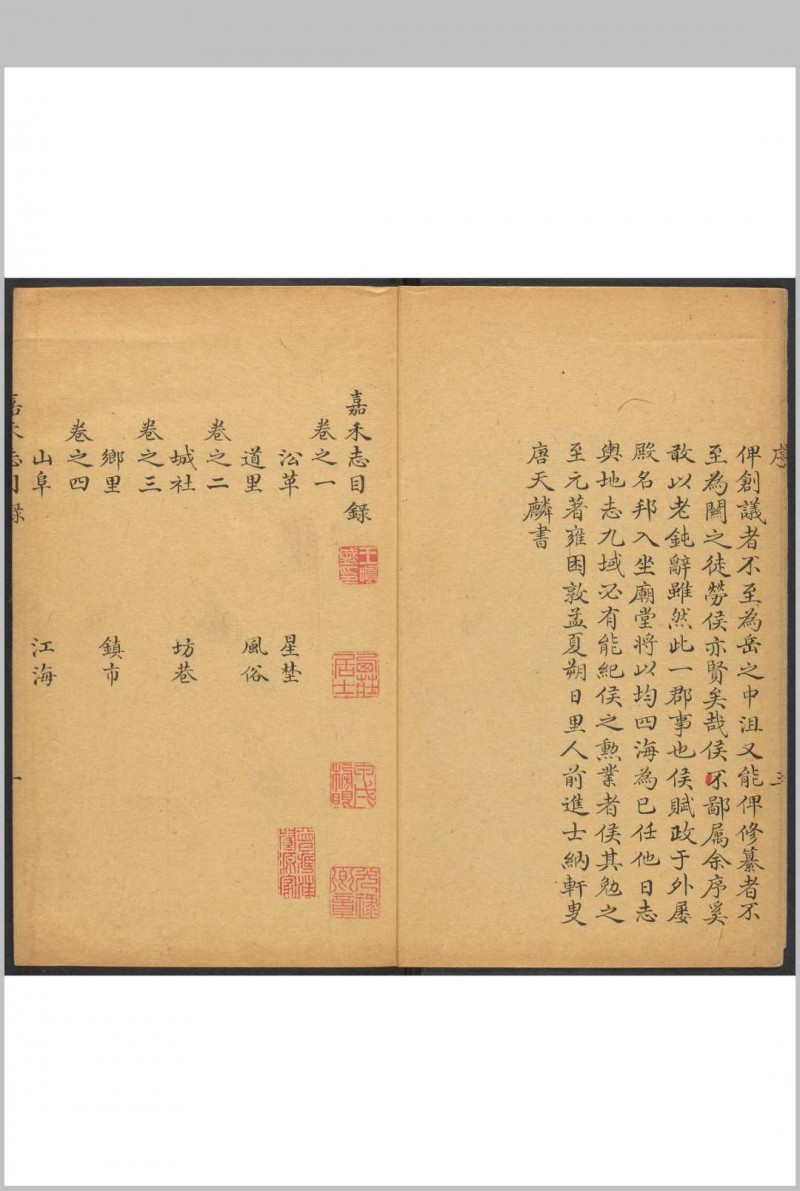 序
三
俾創議者不至為岳之中沮又能俾修纂者不
至為闕之徒勞侯亦賢矣哉侯不鄙属余序奚
敢以老鈍辭雖然此一郡事也侯賦政于外屡
殿名邦入坐廟堂將以均四海為已任他日志
輿地志九域必有能紀侯之勲業者侯其勉之
至元著雍困敦孟夏朔日里人前進士納軒叟
唐天麟書
嘉禾志目録
卷之一
沿革 星埜
道里 風俗
卷之二
城社 坊巷
卷之三
鄉里 鎮市
卷之四
山阜 江海
嘉禾志目録
一